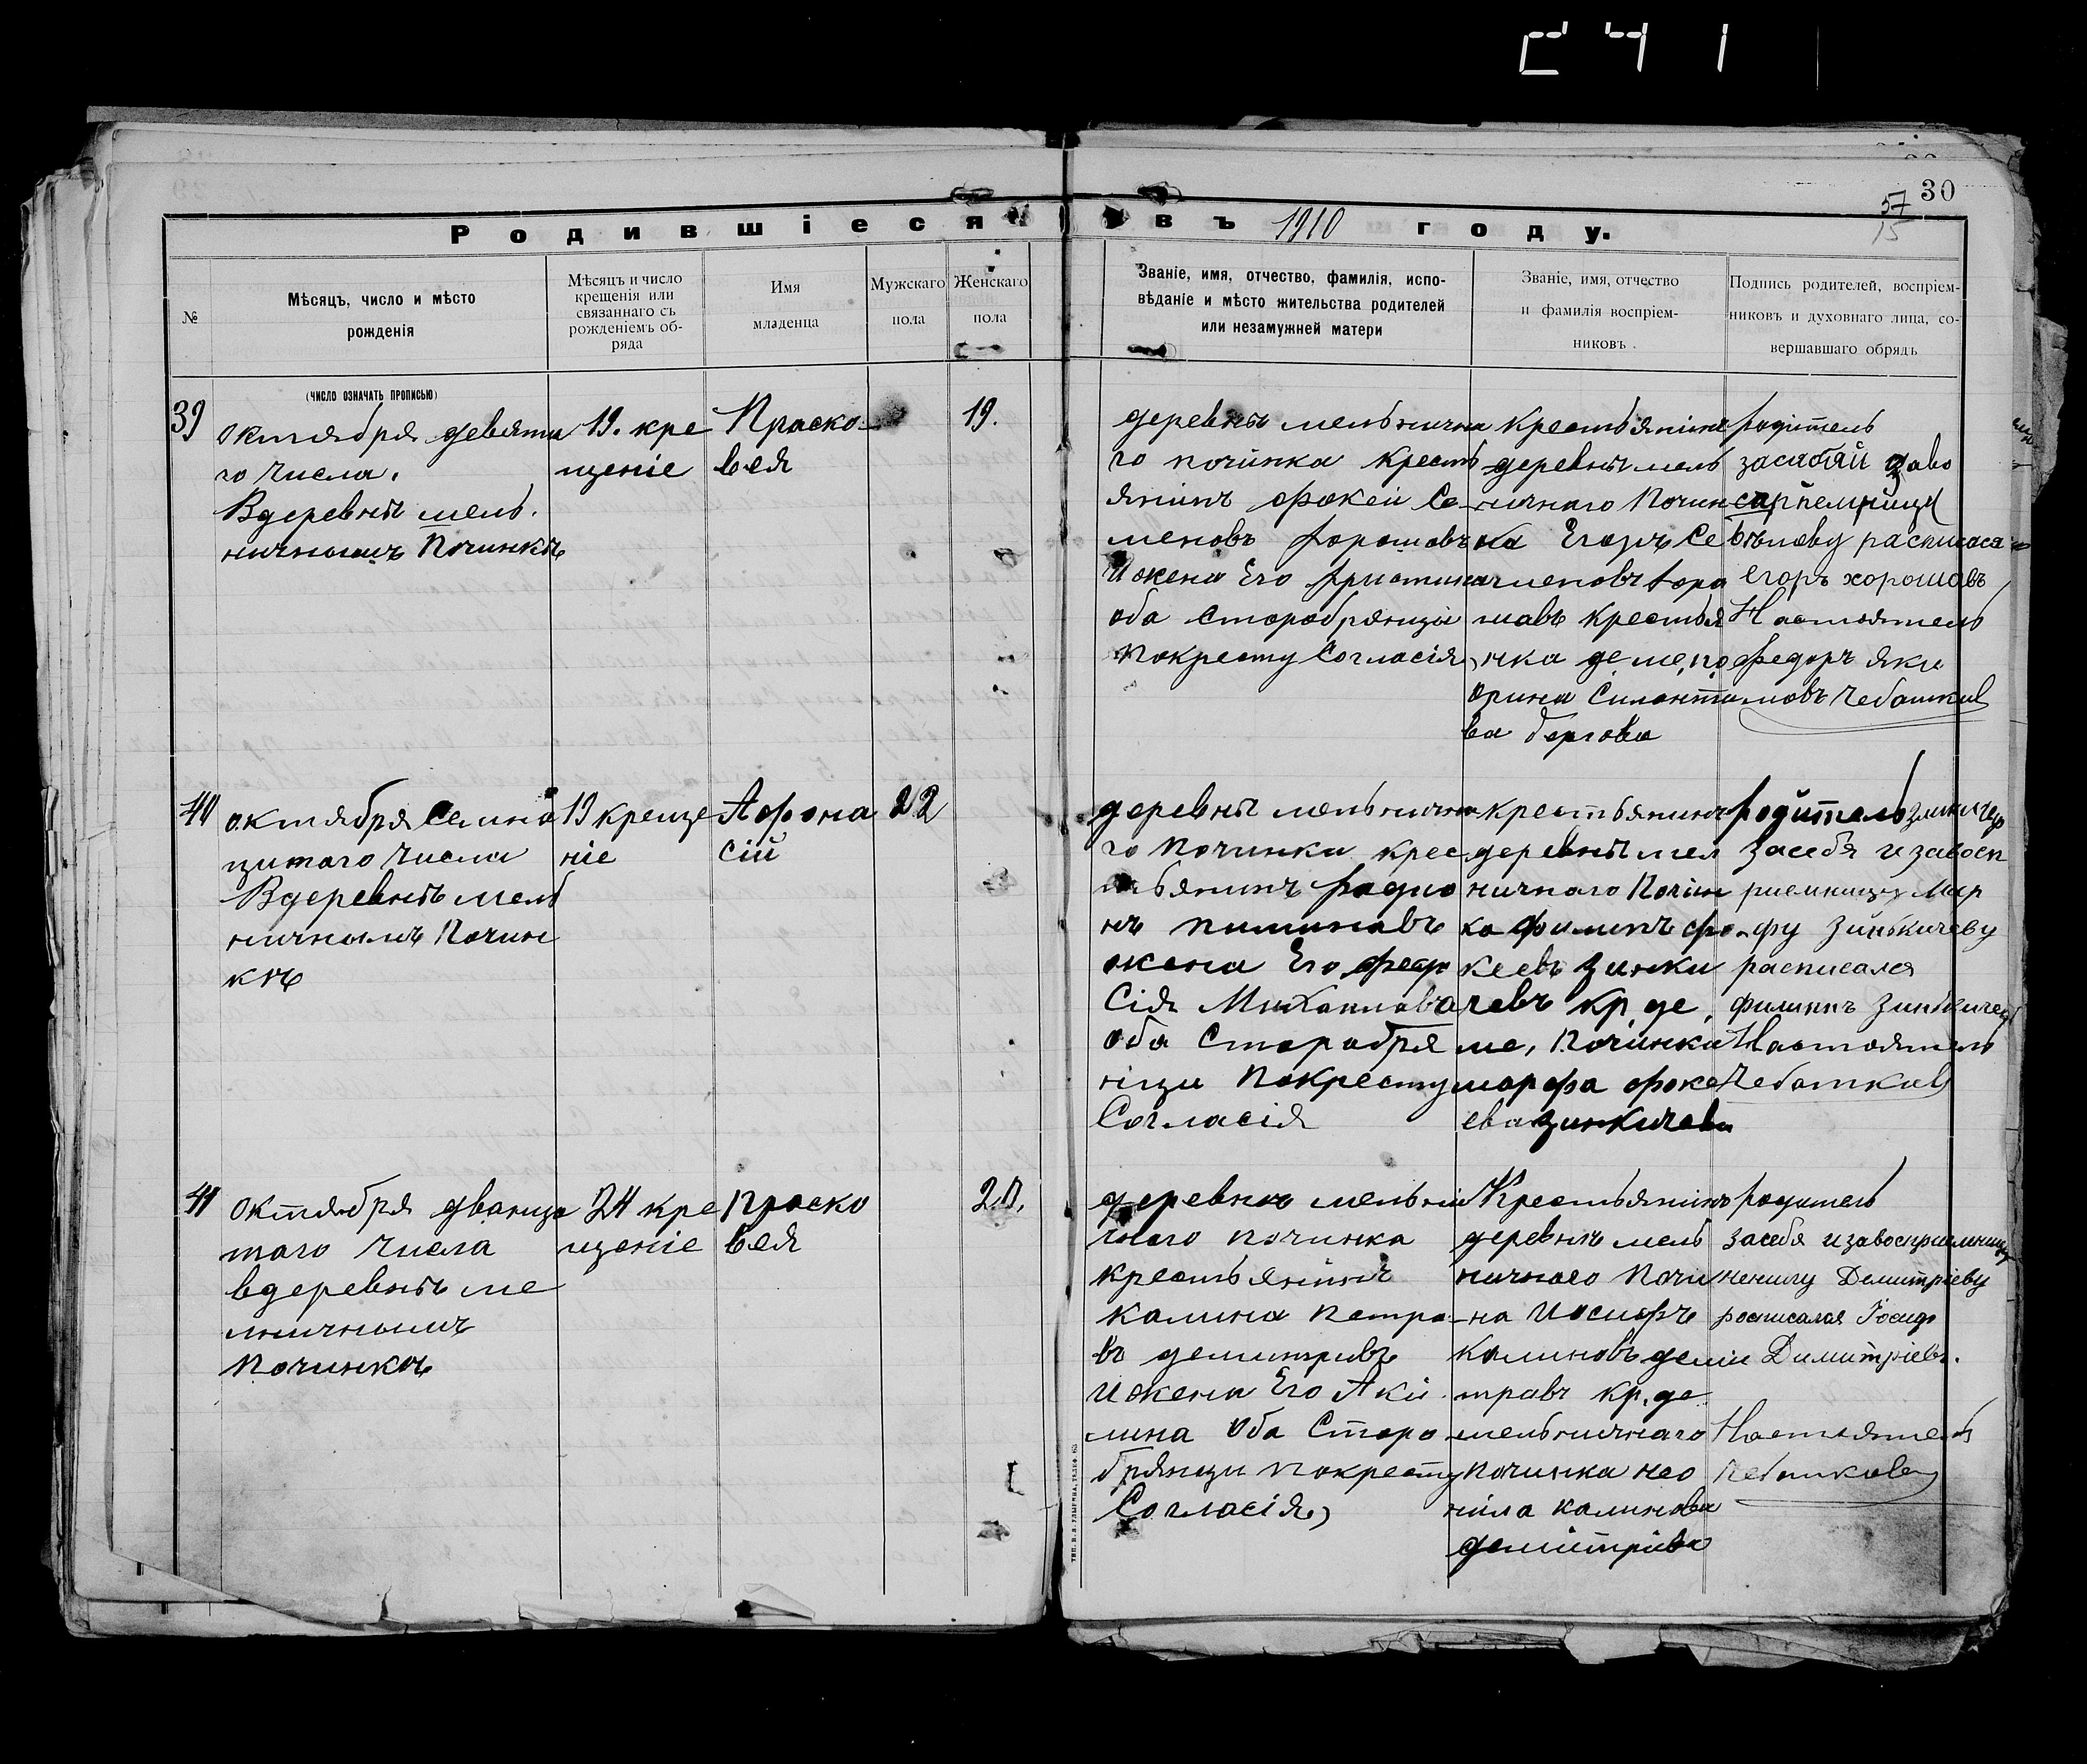 241
30
57
15
Родившіеся въ 1910 году.
№
Мѣсяцъ, число и мѣсто
рожденія
Мѣсяцъ и число
крещенія или
связаннаго съ
рожденіемъ об-
ряда
Имя
младенца
Мужскаго
пола
Женскаго
пола
Званіе, имя, отчество, фамилія, испо-
вѣданіе и мѣсто жительства родителей
или незамужней матери
Званіе, имя, отчество
и фамилія воспріем-
никовъ
Подпись родителей, воспріем-
никовъ и духовнаго лица, со-
вершавшаго обрядъ
(число означать прописью)
39
октября девята
го числа.
Вдеревнѣ мель.
ничнымъ Починкѣ
19. кре
щеніе
Праско-
вея
19.
деревнѣ мельнична
го починка кресть
янинъ фокей Се-
меновъ хорошовъ
И жена Его христина
оба старобрянцы
покресту Согласія
крестьянинъ
деревны мель
ничнаго Почин
ка Егоръ Се
меновъ хоро
шавъ крестья
нка де. ме. по
орина Силанти
ва бергова
родитель
засабяй
расписаса
Егоръ хорошавъ
Настоятель
федоръ яки
мовъ Чебаткив
40
октября Семна
цатаго Числа
Вдеревнѣ мель
ничнымъ Почин
кѣ
19 креще
ніе
Афона
сій
22
деревны мельнична
го Починка крес
тьянинъ радио
нъ пименавъ
жена Его федо
Сія Михаилавна
оба Старабря
нцы покресту
Согласія
крестьянинъ
деревны мел
ничнаго Почин
ка филипъ фо-
кеевъ зинки
чевъ кр. де,
ме, Починка
марфа фоке
ева зинкичева
родитель
засебя и завосп
риемницу мар
фу Зинькичеву
расписался
филипъ Зинькичевъ
Настоятель
Чебаткив
41
октября дванца
таго Числа
вдеревнѣ ме
лничнымъ
Починкѣ
24 кре
щеніе
проско
вея
20,
деревнѣ мельни
чнаго починка
крестьянинъ
калина петро
въ демитривъ
И жена Его Аки
лина Оба Старо
брянцы покресту
Согласія
Крестьянинъ
деревнѣ мель
ничного Почи
на Иосифъ
Калиновъ деми
травъ кр. де
мельничнаго
починка нео
нила калинова
демитрива
родитель
засебя и завосприемницу
ненилу Демитріеву
росписался Іосиф
Димитріевъ.
Настоятель
Чебаткив